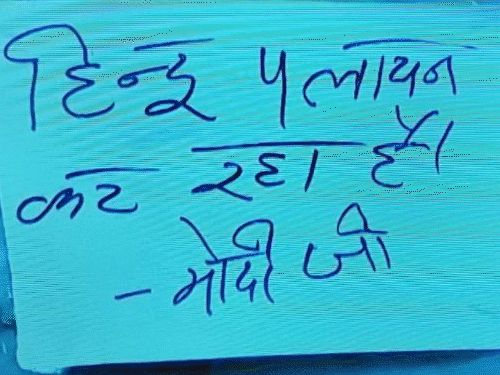 हिन्दू पलायन
कर रहा है।
- मोदी जी